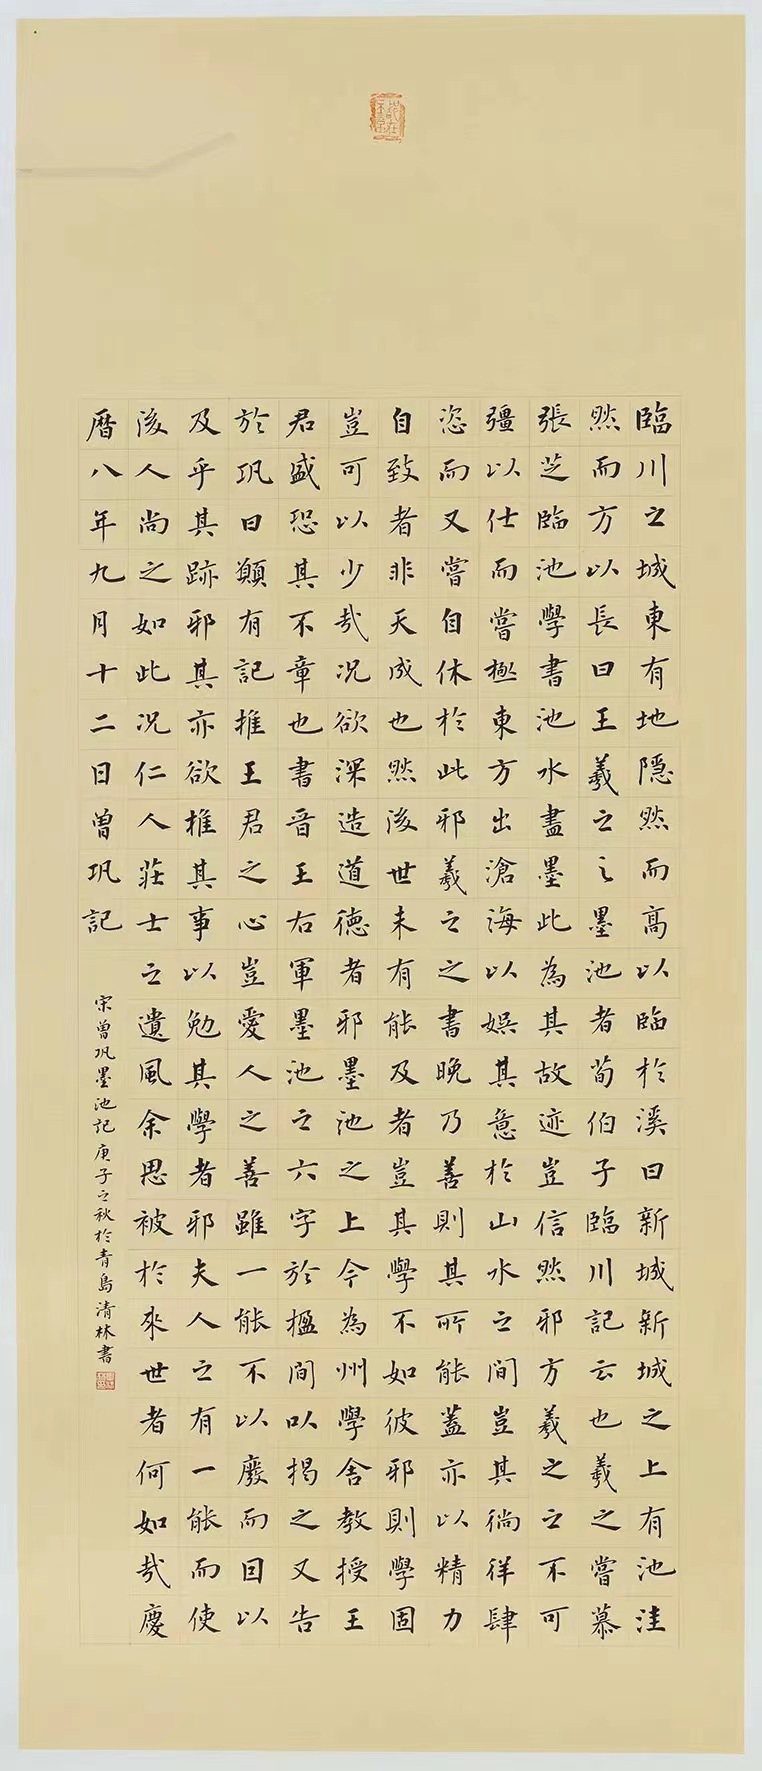 臨川之城東有地隱然而高以臨於溪曰新城新城之上有池洼
然而方以長曰王羲之之墨池者荀伯子臨川記云也羲之嘗慕
張芝臨池學書池水盡墨此為其故迹豈信然邪方羲之之不可
彊以仕而嘗極東方出滄海以娛其意於山水之間豈其徜徉肆
恣而又嘗自休於此邪羲之之書晚乃善則其所能蓋亦以精力
自致者非天成也然後世未有能及者豈其學不如彼邪則學固
豈可以少哉况欲深造道德者邪墨池之上今為州學舍教授王
君盛恐其不章也書晉王右軍墨池之六字於楹間以揭之又告
於巩曰願有記推王君之心豈愛人之善雖一能不以廢而因以
及乎其跡邪其亦欲推其事以勉其學者邪夫人之有一能而使
後人尚之如此况仁人莊士之遺風余思被於來世者何如哉慶
曆八年九月十二日曾巩記
宋曾巩墨池記庚子之秋於青島清林書